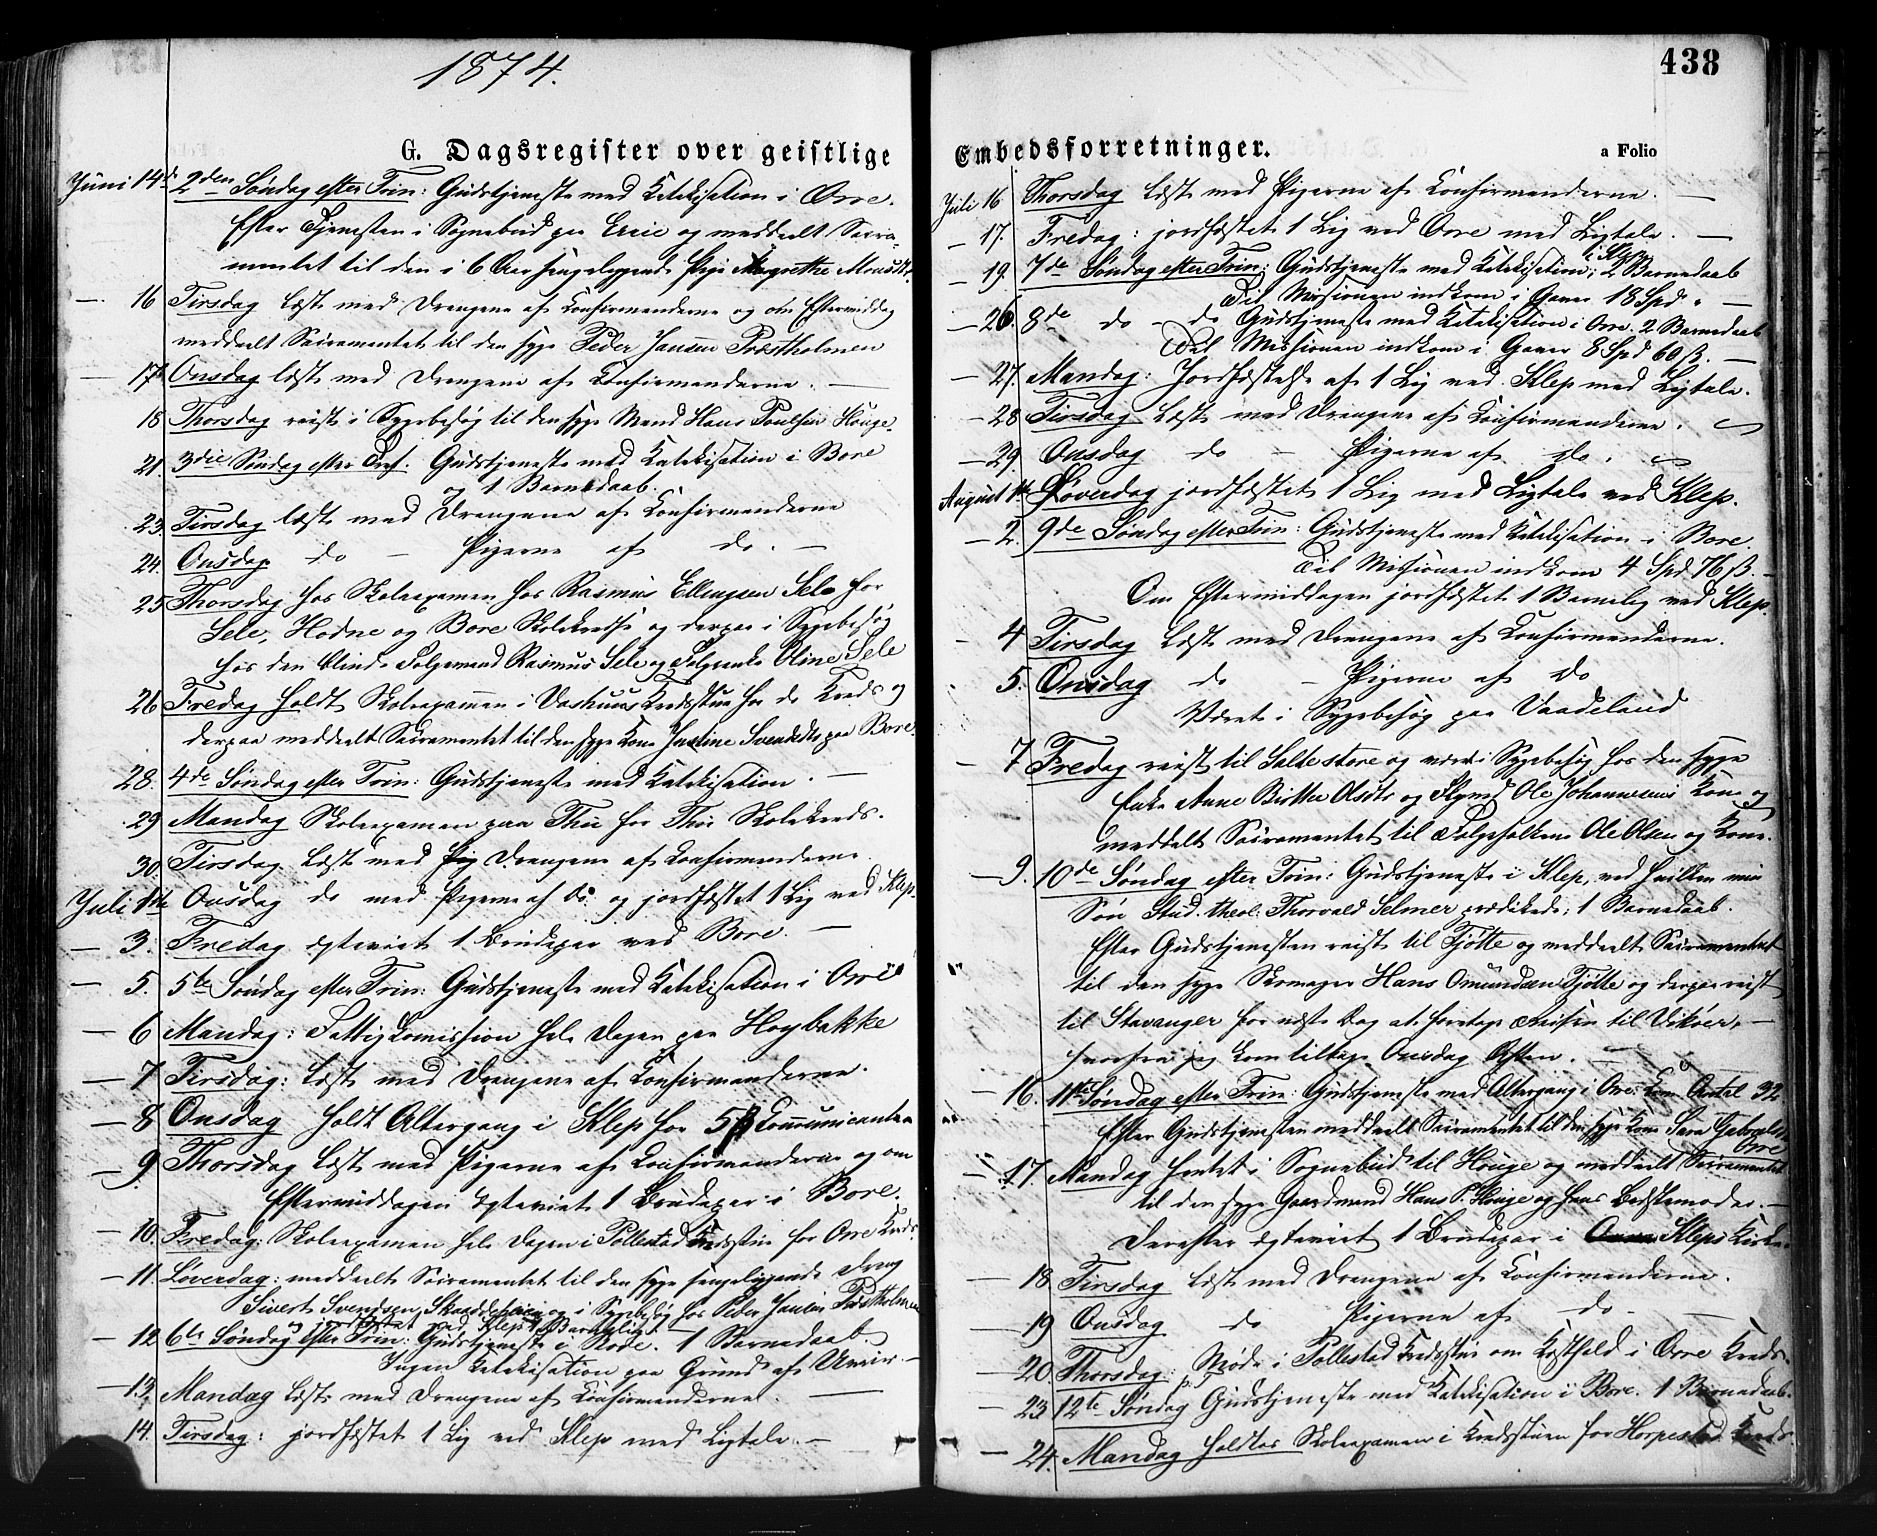 1874.
G. Dagsregister over geistlige
Juni 14de 2den Søndag efter Trin: Gudstjeneste med Katekisation i Orre.
Efter Tjenesten i Sognebud paa Erie og meddeelt Sacra-
mentet til den i 6 Aar sengeliggende Pige Magrethe Monsdtr.
— 16 Tirsdag læste med Drengene af Confirmanderne og om Eftermiddag
meddeelt Sacramentet til den syge Peder Jansen Præstholmen
— 17de Onsdag læste med Drengene af Confirmanderne. —
18 Thorsdag reiste i Sygebesøg til den syge Mand Hans Poulsen Houge.
21. 3die Søndag efter Tref. Gudstjeneste med Katekisation i Bore
og 1 Barnedaab.
23. Tirsdag læste med Drengene af Confirmanderne
24. Onsdag do — Pigerne af do. —
25 Thorsdag hos Skoleexamen hos Rasmus Ellingsen Sele for
Sele, Hodne og Bore Skolekredse og derpaa i Sygebesøg
hos den blinde Folgemand Rasmus Sele og Folgeenke Oline Sele
26 Fredag holdt Skoleexamen i Vashuus Kredsstue for do Kreds og
derpaa meddeelt Sacramentet til den syge Kone Justine Svendsdtr paa Bore.
28. 4de Søndag efter Trin: Gudstjeneste med Katekisation. —
29 Mandag Skoleexamen paa Thu for Thu Skolekreds.
30. Tirsdag læste med Drengene af Confirmanderne.
Juli 1ste Onsdag do med Pigerne af do og jordfæstet 1 Lig ved Klep.
— 3. Fredag ægteviet 1 Brudepar ved Bore. —
— 5. 5te Søndag efter Trin: Gudstjeneste med Katekisation i Orre
— 6 Mandag: Fattigkomission hele Dagen paa Hoybakke
— 7 Tirsdag: læste med Drengene af Confirmanderne.
— 8 Onsdag holdt Altergang i Klep for Communicanter
— 9. Thorsdag læste med Pigerne af Confirmanderne og om
Eftermiddagen ægteviet 1 Brudepar i Bore.
— 10. Fredag: Skoleexamen hele Dagen i Pollestad Kredsstue for Orre Kreds.
— 11. Løverdag: meddeelt Sacramentet til den syge sengeliggende Dreng
Sivert Svendsen og i Sygebesøg hos Peder Jansen Præstholmen
og jordfæstet ved Klep 1 Barnelig.
— 12 6te Søndag efter Trin: Gudstjeneste i Bore. 1 Barnedaab.
Ingen Katekisation paa Grund af Uveir. —
— 13. Mandag læste med Drengene af Confirmanderne. —
14. Tirsdag: jordfæstet 1 Lig ved Klep med Ligtale. —
438
Embedsforretninger.
a Folio
Juli 16 Thorsdag læste med Pigerne af Confirmanderne. —
— 17. Fredag: jordfæstet 1 Lig ved Orre med Ligtale. —
i Klep
— 19. 7de Søndag efter Trin: Gudstjeneste med Katekisation; 2 Barnedaab
Til Missionen indkom i Gaver 18 Spd. —
— 26. 8de do — do Gudstjeneste med Katekisation i Orre. 2 Barnedaab
Til Missionen indkom i Gaver 8 Spd 60 ß. —
— 27. Mandag: Jordfæstelse af 1 Lig ved Klep med Ligtale.
— 28 Tirsdag læste med Drengene af Confirmanderne.
— 29. Onsdag do — Pigerne af do.
August 1ste Løverdag jordfæstet 1 Lig med Ligtale ved Klep.
— 2. 9de Søndag efter Trin: Gudstjeneste med Katekisation i Bore.
Til Missionen indkom 4 Spd 76 ß. —
Om Eftermiddagen jordfæstet 1 Barnelig ved Klep.
— 4 Tirsdag læste med Drengene af Confirmanderne.
5. Onsdag do — Pigerne af do
Været i Sygebesøg paa Vaadeland
— 7 Fredag reist til Salte store og været i Sygebesøg hos den syge
Enke Anne Birthe Olsdtr og Ole Johannesens Kone og
meddelt Sacramentet til Folgefolkene Ole Olsen og Kone.
— 9. 10de Søndag efter Trin: Gudstjeneste i Klep, ved hvilken min
Søn Stud. theol: Thorvald Selmer prædikede; 1 Barnedaab.
Efter Gudstjenesten reist til Tjøtte og meddeelt Sacramentet
til den syge Skomager Hans Omundsen Tjøtte og derpaa reist
til Stavanger for næste Dag at foretage Reisen til Vikøer, —
hvorfra jeg kom tilbage Onsdag Aften. —
— 16. 11te Søndag efter Trin: Gudstjeneste med Altergang i Orre: Com. Antal 32
Efter Gudstjenesten meddeelt Sacramentet til den syge Kone Sara Gabrielsdtr
Orre
— 17. Mandag hentet i Sognebud til Houge og meddeelt Sacramentet
til den syge Gaardmand Hans P. Houge og hans Bedstemoder. —
Derefter ægteviet 1 Brudepar i Kleps Kirke.
— 18 Tirsdag læste med Drengene af Confirmanderne.
— 19 Onsdag do Pigerne af do —
— 20 Thorsdag Møde i Pollestad Kredsstue om Kosthold i Orre Kreds.
— 23 12te Søndag Gudstjeneste med Katekisation i Bore. 1 Barnedaab.
— 24. Mandag holdtes Skoleexamen i Kredsstuen for Horpestad Kreds.